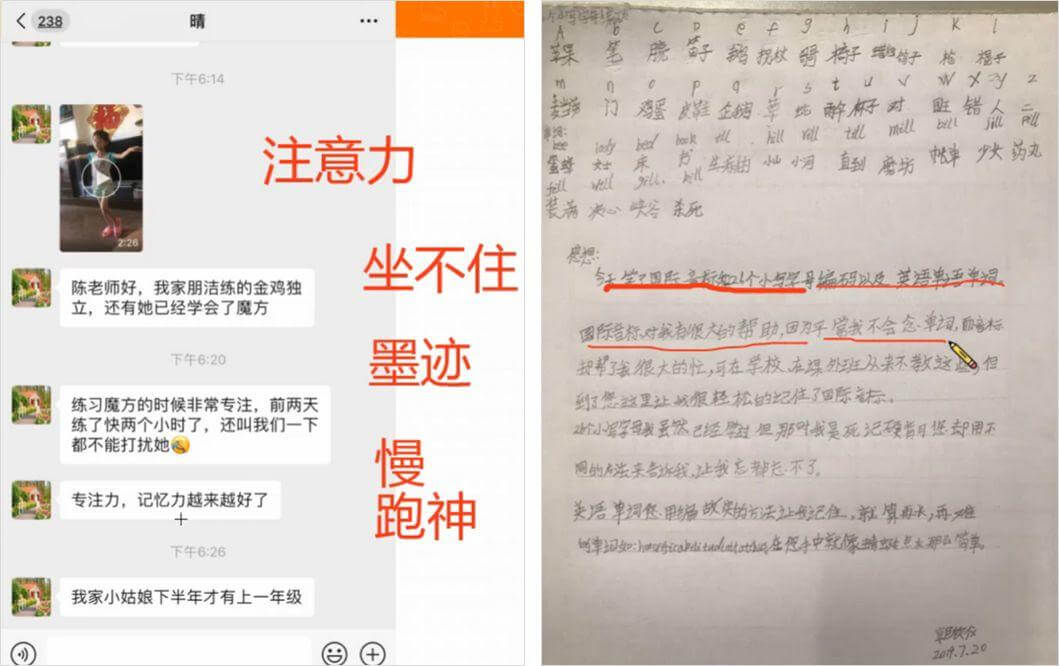 238
晴
下午6:14
福
2:26
陈老师好，我家朋洁练的金鸡独
立，还有她已经学会了魔方
下午6:20
练习魔方的时候非常专注，前两天
练了快两个小时了，还叫我们一下
都不能打扰她
专注力，记忆力越来越好了
下午6:26
我家小姑娘下半年才有上一年级
注意力
坐不住
墨迹
慢
跑神
A b c D e f g h i j k l
苹果 笔 笛子 鹅 拐杖 椅子
m n o p q r s t u v w x y z
麦当劳 门 鸡蛋 皮鞋 企鹅 草 杯子 对 旺 错 人 二
单词:
bee body bed book tell hill roll till mill bell jill pill
蜜蜂 床 书 告诉 小山 小河 直到 磨坊 少女 药丸
fell well gill. kill
装满 决心 峡谷 杀死
感想:
今天学了国际音标和26个小写字母编码以及英语单语单词.
国际音标对我有很大的帮助,因为平常我不会念单词,而音标
却帮了我很大的忙,可在学校、在课外班从来不教这些,但
到了您这里让我很轻松的记住了国际音标。
26个小写字母我虽然已经学过但那时我是死记硬背但您却用不
同的方法来告诉我,让我忘都忘不了。
英语单词您用编故实的方法让我记住,就算再长,再难
的单词如:在您手中就像蜻蜓点水那么简单。
2019.7.20